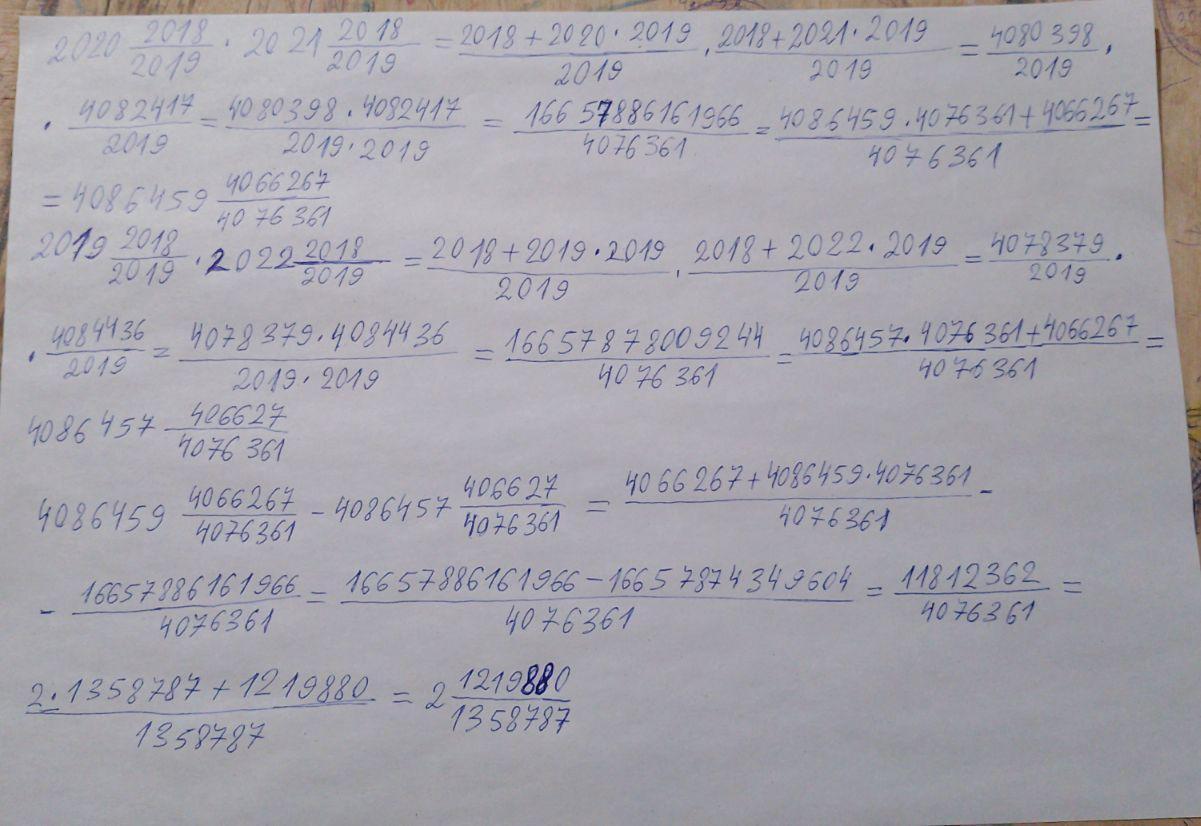 2020 2018/2019 · 2021 2018/2019 = (2018 + 2020 · 2019)/2019 · (2018 + 2021 · 2019)/2019 = 4080398/2019 ·
· 4082417/2019 = (4080398 · 4082417)/(2019 · 2019) = 16657886161966/4076361 = (4086459 · 4076361 + 4066267)/4076361 =
= 4086459 4066267/4076361
2019 2018/2019 · 2022 2018/2019 = (2018 + 2019 · 2019)/2019 · (2018 + 2022 · 2019)/2019 = 4078379/2019 ·
· 4084436/2019 = (4078379 · 4084436)/(2019 · 2019) = 16657878009244/4076361 = (4086457 · 4076361 + 4066267)/4076361 =
4086457 406627/4076361
4086459 4066267/4076361 - 4086457 406627/4076361 = (4066267 + 4086459 · 4076361)/4076361 -
- 16657886161966/4076361 = (16657886161966 - 16657874349604)/4076361 = 11812362/4076361 =
(2 · 1358787 + 1219880)/1358787 = 2 1219880/1358787